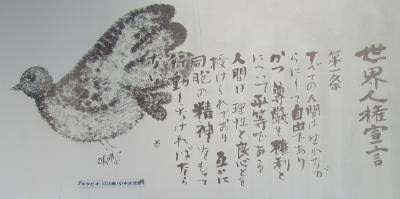 世界人権宣言
第一条
すべての人間は生れなが
らにして自由であり
かつ尊厳と権利と
について平等である
人間は理性と良心とを
授けられており互に
同胞の精神をもって
行動しなければなら
ない